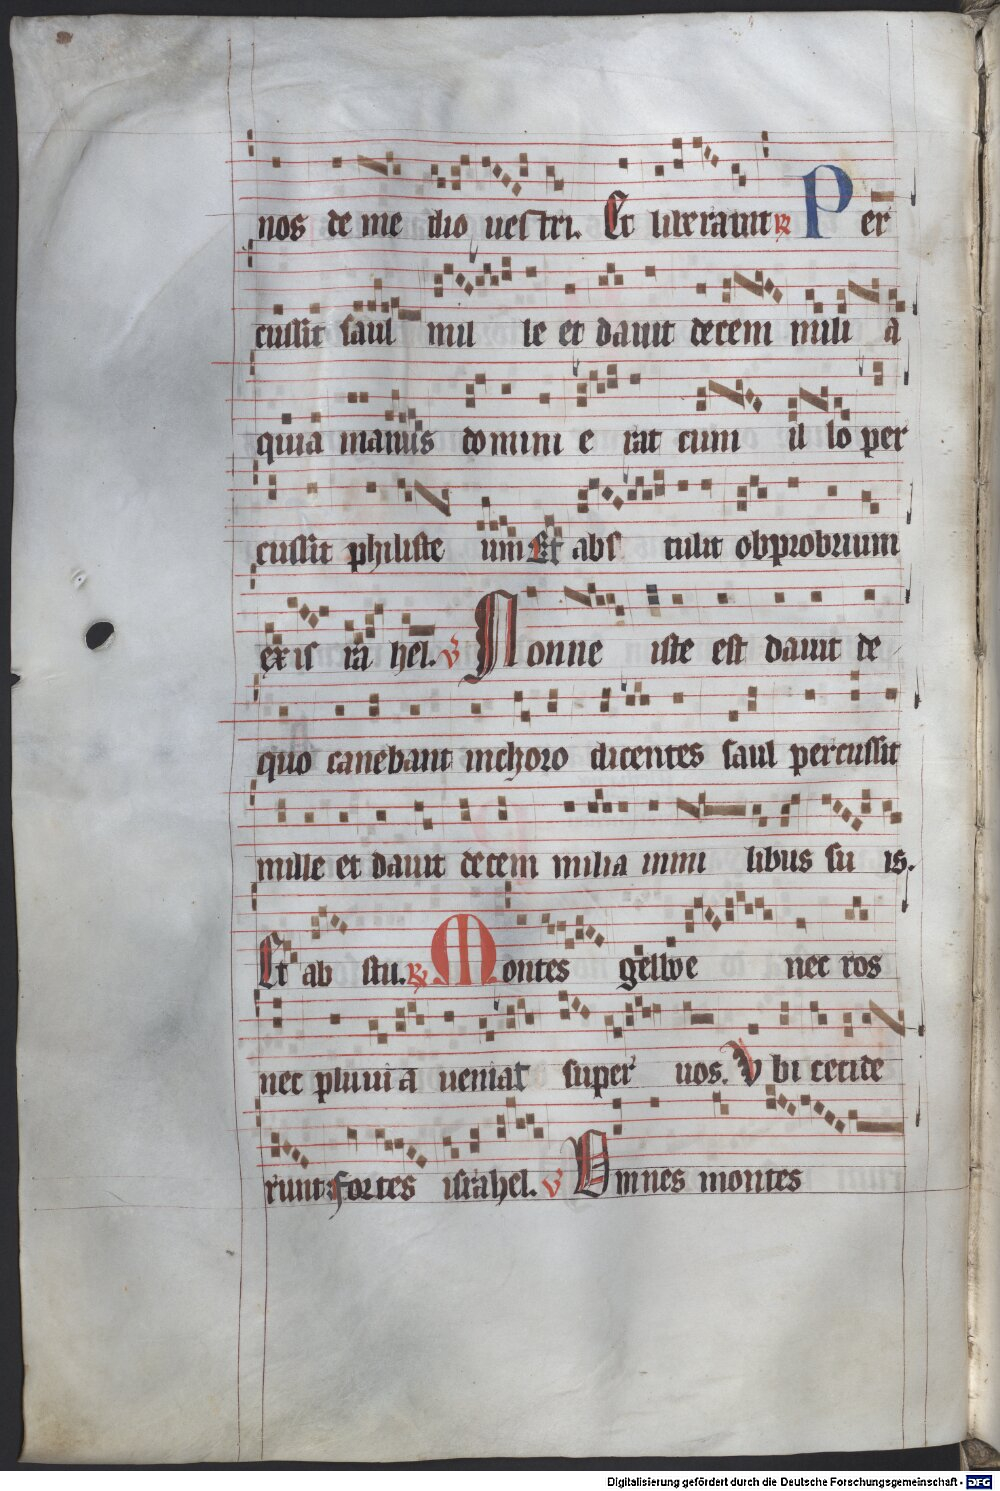 nos de me dio uestri. Et liberauit ℟ Per
cussit saul mil le et dauit decem mili a
quia manus domini e rat cum il lo per
cussit philiste um Et abs tulit obprobrium
ex is ra hel. ℣ Nonne iste est dauit de
quo canebant inchoro dicentes saul percussit
mille et dauit decem milia inmi libus su is.
Et ab stu. ℟ Montes gelboe nec ros
nec pluui a ueniat super uos. Vbi cecide
runt fortes israhel. ℣ Omnes montes
Digitalisierung gefördert durch die Deutsche Forschungsgemeinschaft - DFG